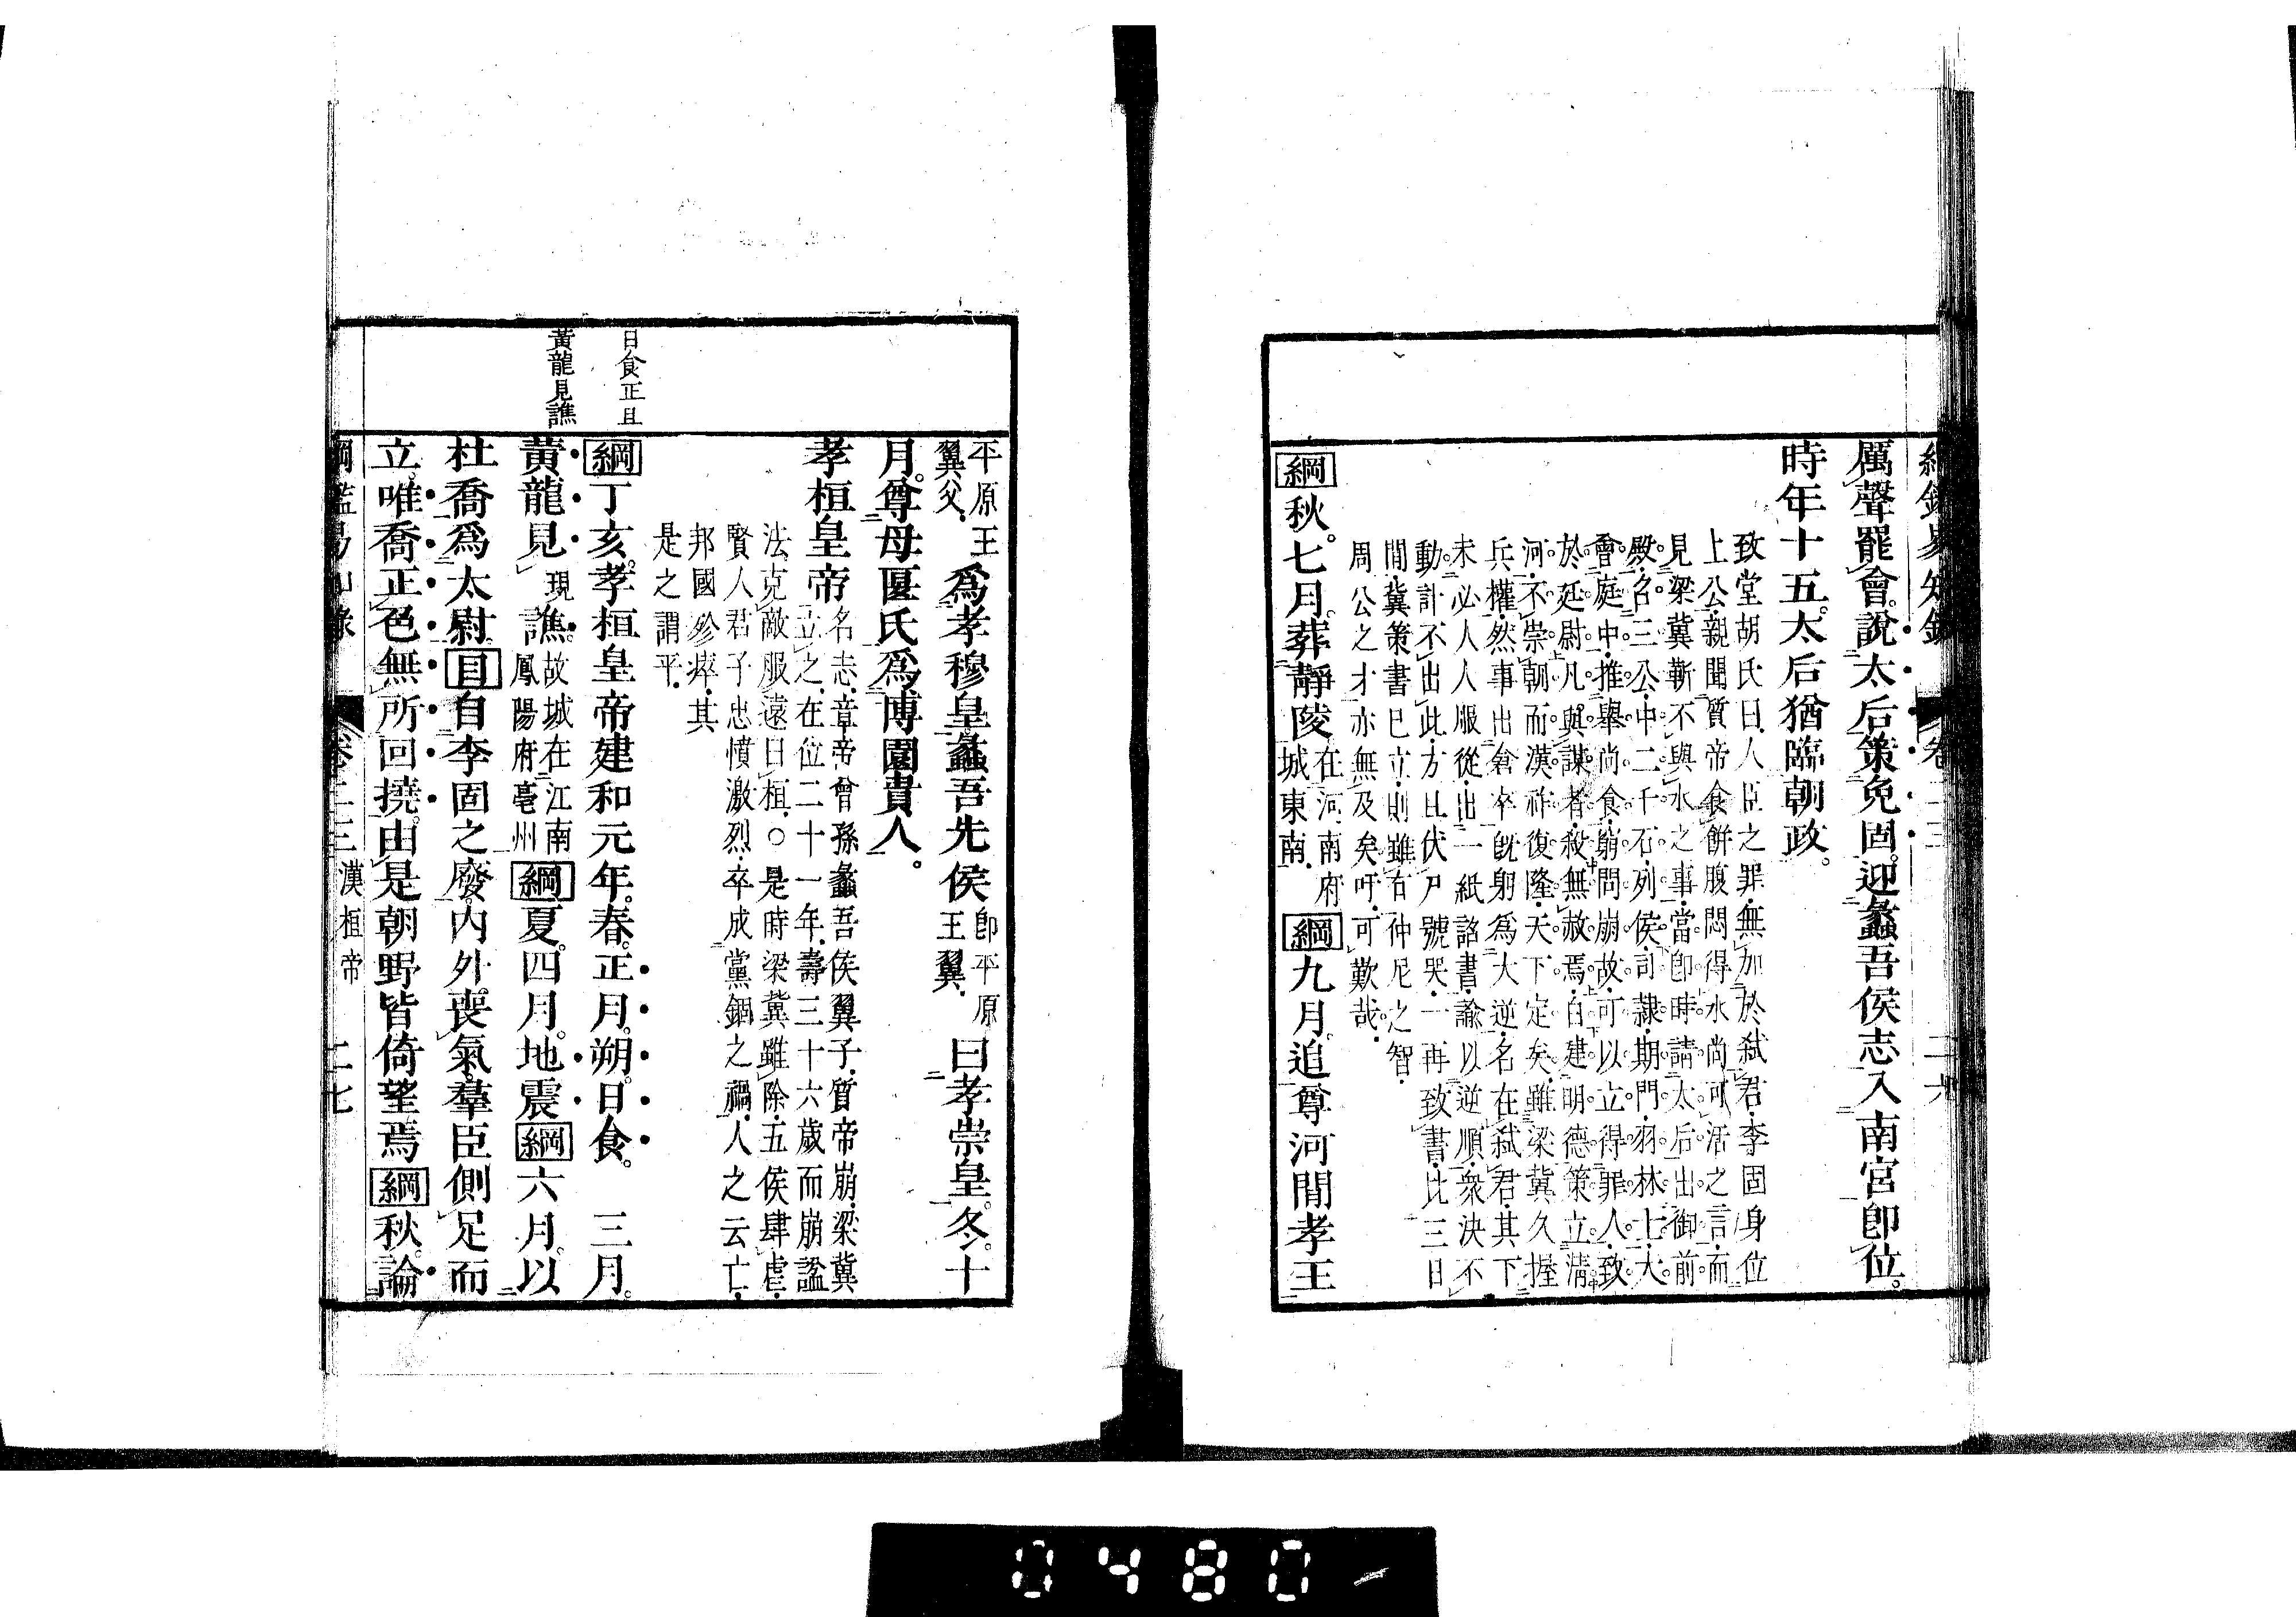 厲聲罷會。說太后策免固。迎蠡吾侯志入南宮卽位。
時年十五。太后猶臨朝政。
致堂胡氏曰人臣之罪無加於弒君李固身位
上公親聞質帝食餅腹悶得水尚可活之言而
見梁冀靳不與水之事當卽時請太后出御前
殿名三公中二千石列侯司隷期門羽林士大
會庭中推舉尚食窮問崩故可以立得罪人致
於延尉凡與謀者殺無赦焉白建明德策立淸
河不崇朝而漢祚復隆天下定矣雖梁冀久握
兵權然事出倉卒旣躬為大逆名在弒君其下
未必人人服從出一紙詔書諭以逆順衆決不
動計不出此方且伏尸號哭一再致書比三日
閒冀策書已立則雖右仲尼之智
周公之才亦無及矣吁可歎哉
綱秋。七月。葬靜陵在河南府城東南綱九月。追尊河閒孝王
平原王翼父爲孝穆皇。蠡吾先侯卽平原王翼曰孝崇皇。冬。十
月。尊母匽氏爲博園貴人。
孝桓皇帝名志章帝曾孫蠡吾侯翼子質帝崩梁冀
立之在位二十一年壽三十六歲而崩諡
法克敵服遠曰桓○是時梁冀雖除五侯肆虐
賢人君子忠憤激烈卒成黨錮之禍人之云亡
邦國殄瘁其
是之謂乎
日食正旦
綱丁亥。孝桓皇帝建和元年。春。正月。朔。日食。三月。
黃龍見譙
黃龍見現譙。故城在江南鳳陽府亳州綱夏。四月。地震綱六月。以
杜喬爲太尉。目自李固之廢。內外喪氣。羣臣側足而
立。唯喬正色無所回撓。由是朝野皆倚望焉綱秋。論
卷二三 漢桓帝 二七
0480